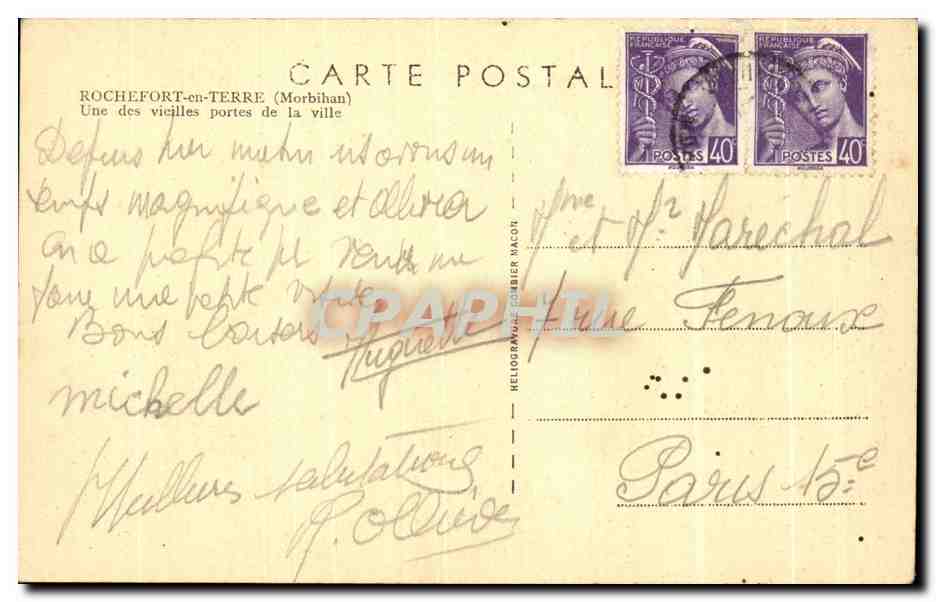 CARTE POSTAL
ROCHEFORT-en-TERRE (Morbihan)
Une des vieilles portes de la ville
REPUBLIQUE FRANCAISE
POSTES 40c
REPUBLIQUE FRANCAISE
POSTES 40c
Depuis hier matin nous avons un
temps magnifique et Ollivier
en a profité pr venir me
faire une petite visite
Bons baisers
Huguette
michelle
Meilleures salutations
R. Ollivier
HELIOGRAVURE COMBIER MACON
Mme et Mr Maréchal
4 rue Fenoux
Paris 15e
CPAPHIL